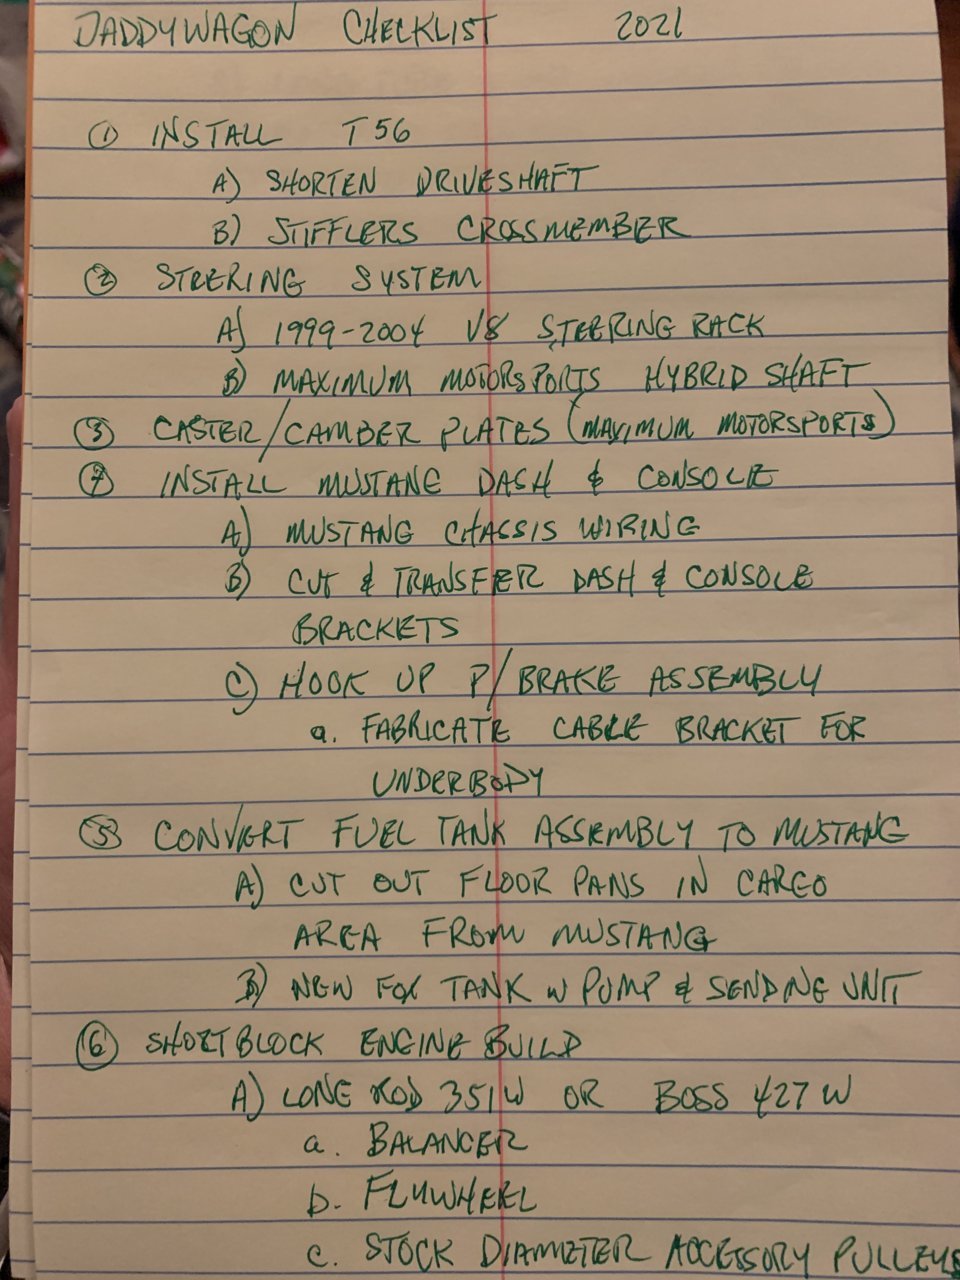 DADDYWAGON CHECKLIST 2021
① INSTALL T56
A) SHORTEN DRIVESHAFT
B) STIFFLERS CROSSMEMBER
② STEERING SYSTEM
A) 1999-2004 V8 STEERING RACK
B) MAXIMUM MOTORSPORTS HYBRID SHAFT
③ CASTER/CAMBER PLATES (MAXIMUM MOTORSPORTS)
④ INSTALL MUSTANG DASH & CONSOLE
A) MUSTANG CHASSIS WIRING
B) CUT & TRANSFER DASH & CONSOLE
BRACKETS
C) HOOK UP P/BRAKE ASSEMBLY
a. FABRICATE CABLE BRACKET FOR
UNDERBODY
⑤ CONVERT FUEL TANK ASSEMBLY TO MUSTANG
A) CUT OUT FLOOR PANS IN CARGO
AREA FROM MUSTANG
B) NEW FOX TANK W PUMP & SENDING UNIT
⑥ SHORTBLOCK ENGINE BUILD
A) LONG ROD 351W OR BOSS 427W
a. BALANCER
b. FLYWHEEL
c. STOCK DIAMETER ACCESSORY PULLEYS